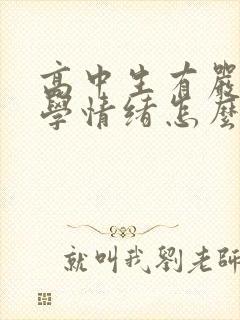 高中生有嚴
學情緒怎麼
就叫我劉老師